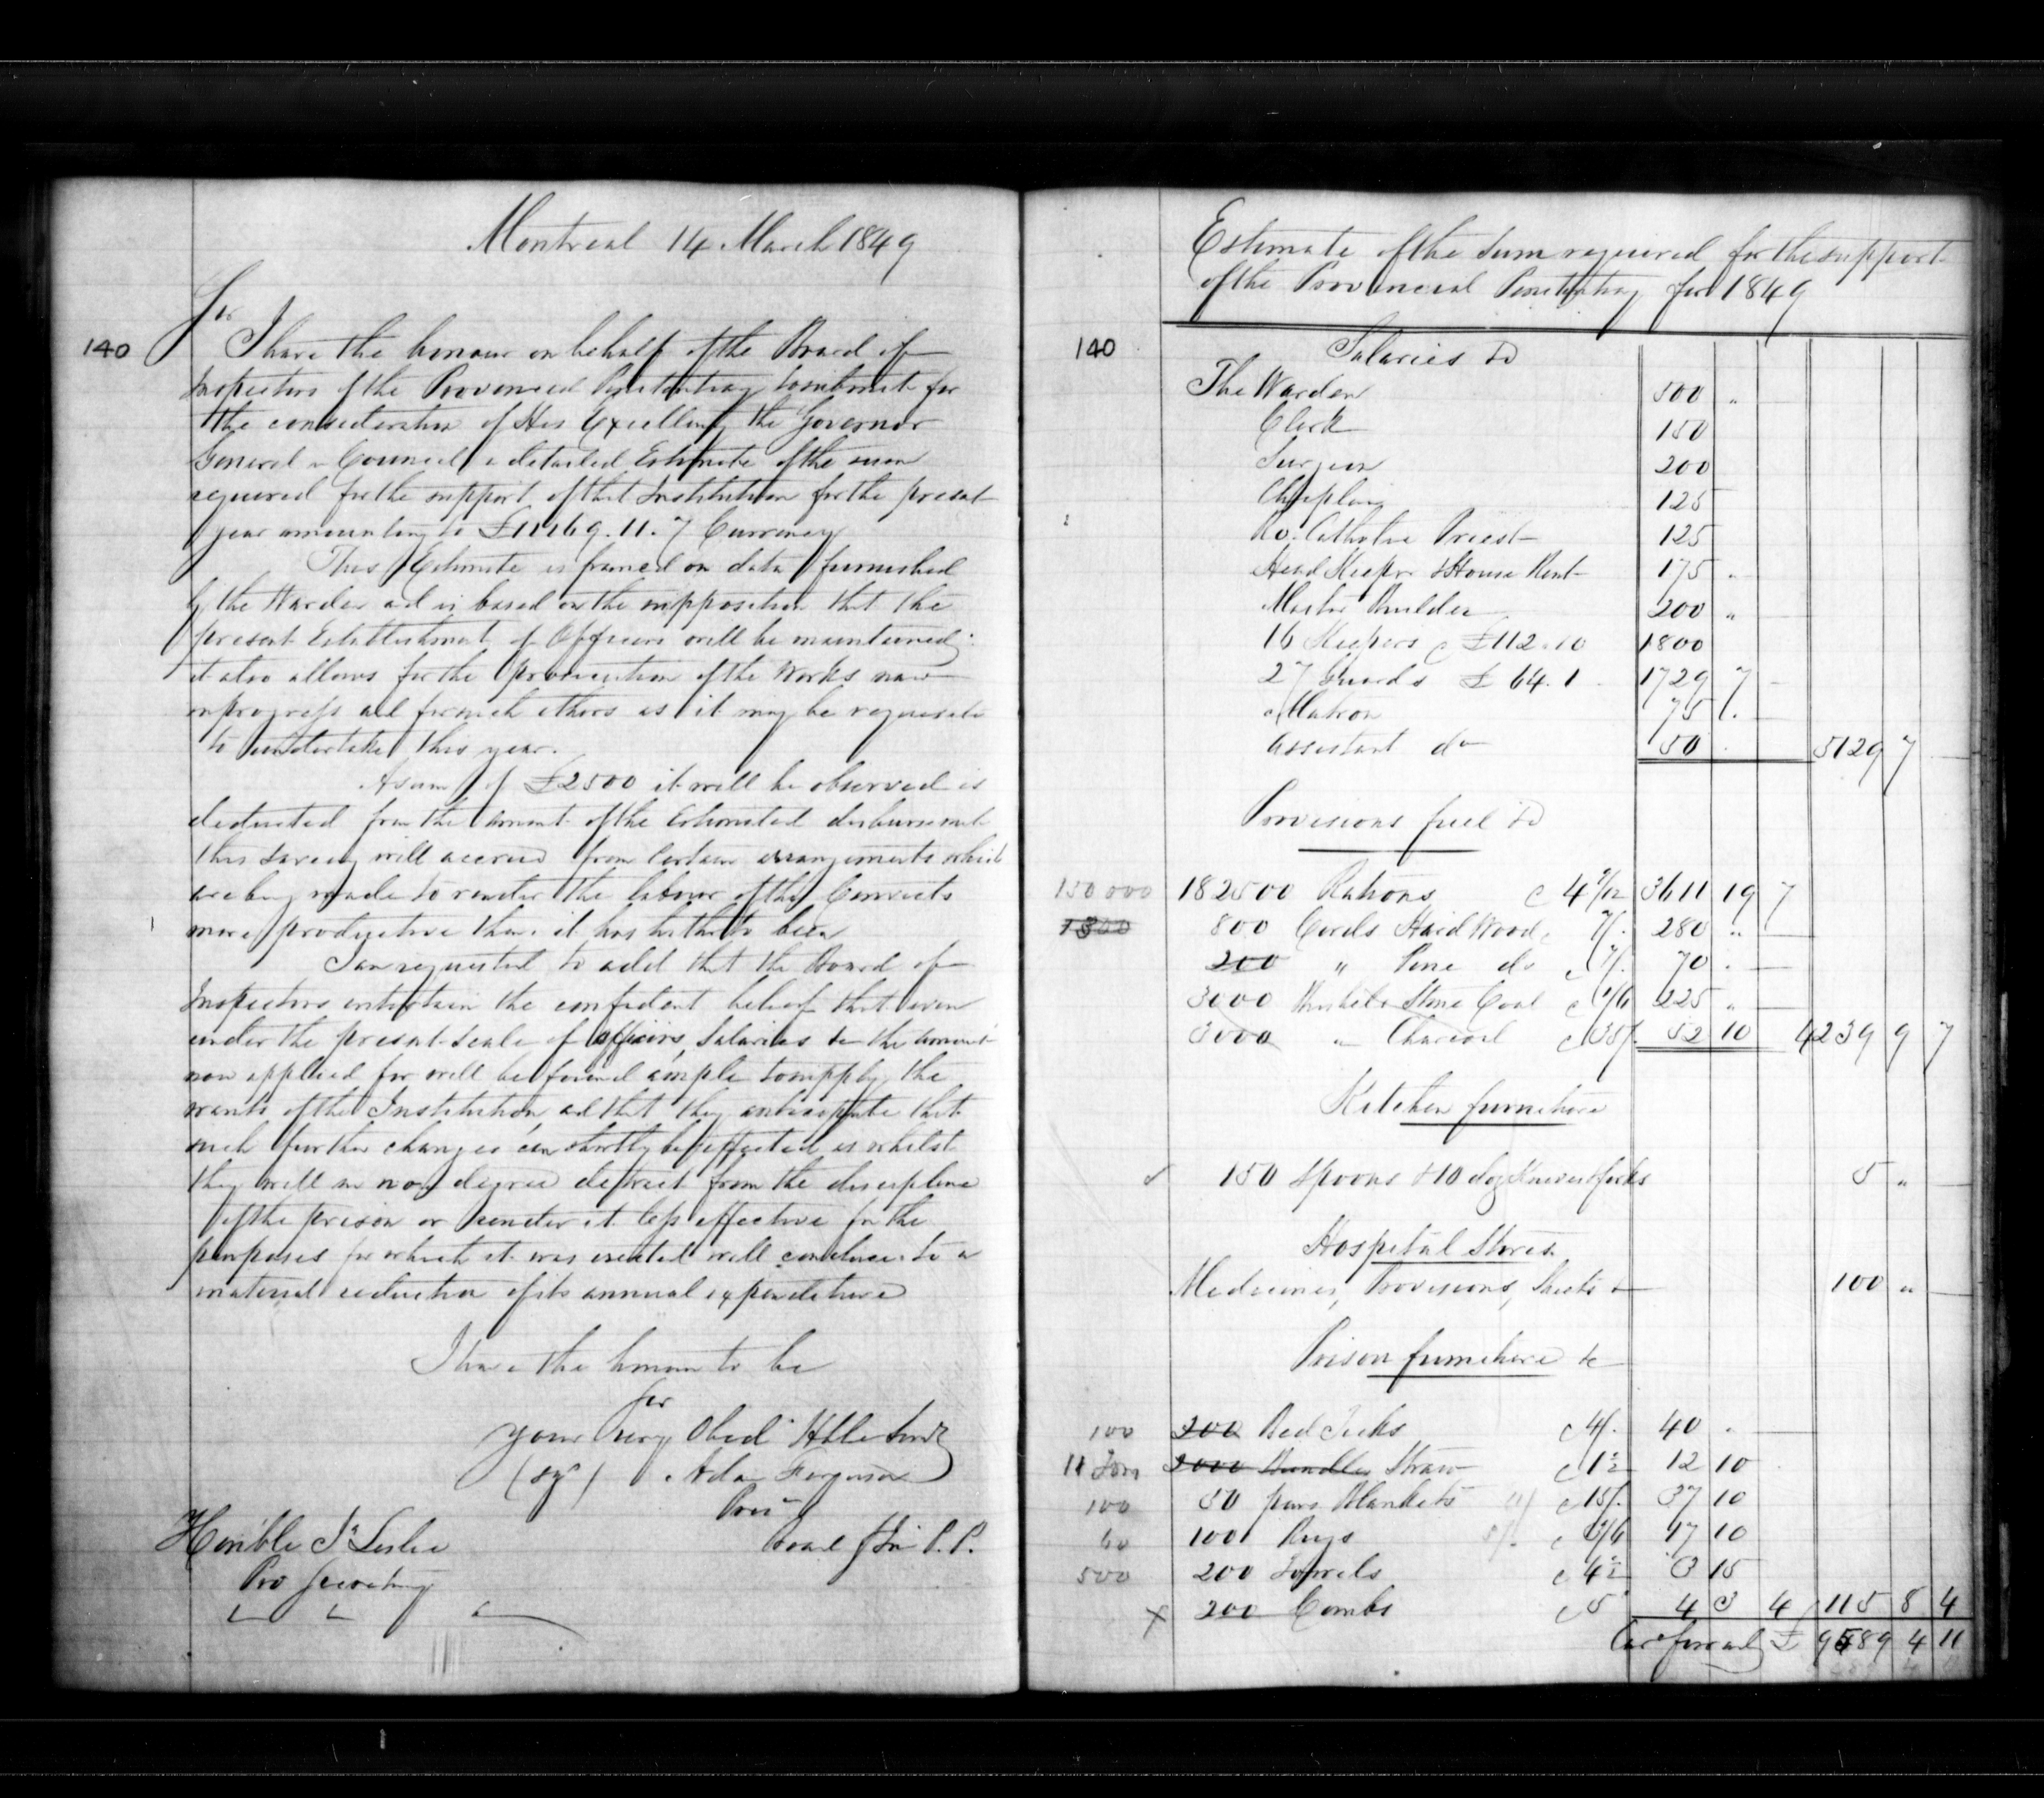 Montreal 14 March 1849
140
Sir
I have the honour on behalf of the Board of
Inspectors of the Provincial Penitentiary to submit for
the consideration of His Excellency the Governor
General in Council a detailed Estimate of the sum
required for the support of that Institution for the present
year amounting to £11169.11.7 Currency
This Estimate is framed on data furnished
by the Warden and is based on the supposition that the
present Establishment of Officers will be maintained:
it also allows for the prosecution of the Works now
in progress and for such others as it may be requisite
to undertake this year.
A sum of £2500 it will be observed is
deducted from the amount of the Estimated disbursement
this saving will accrue from certain arrangements which
are being made to render the labour of the Convicts
more productive than it has hitherto been
I am requested to add that the Board of
Inspectors entertain the confident belief that even
under the present scale of officers, Salaries &c the amount
now applied for will be found ample to supply the
wants of the Institution, and that they anticipate that
such further changes can shortly be effected as whilst
they will in no degree detract from the discipline
of the prison or render it less effective for the
purposes for which it was created will conduce to a
material reduction of its annual expenditure
I have the honour to be
Sir
Your very Obed Hble Servt
(sgd) Adam Fergusson
Prest
Board of Ins P. P.
Hon'ble Js Leslie
Pro Secretary
Estimate of the Sum required for the support
of the Provincial Penitentiary for 1849
140
Salaries &c
The Warden 500 "
Clerk 150
Surgeon 200
Chaplain 125
Ro. Catholic Priest 125
Head Keeper & House Rent 175 "
Master Builder 200 "
16 Keepers @ £112.10 1800
27 Guards £64.1 1729 7
Matron 75
Assistant do 50 5129 7
Provisions fuel &c
150000 182500 Rations @ 4 9/12 3611 19 7
1300 800 Cords Hard Wood @ 7/. 280 "
200 " Pine do @ 7/. 70
3000 Bushels Stone Coal @ 1/6 225 "
3000 " Charcoal @ 35/. 52 10 4239 9 7
Kitchen furniture
150 Spoons & 10 doz Knives & forks 5 "
Hospital Stores
Medicines, Provisions, Sheets &c 100 "
Prison furniture &c
100 200 Bed Ticks @ 4/. 40
11 Tons 2000 Bundles Straw @ 1½ 12 10
100 50 pairs Blankets @ 15/. 37 10
60 100 Rugs @ 3/6 17 10
500 200 Towels @ 4½ 3 15
x 200 Combs @ 5 4 3 4 115 8 4
Card forward £ 9589 4 11